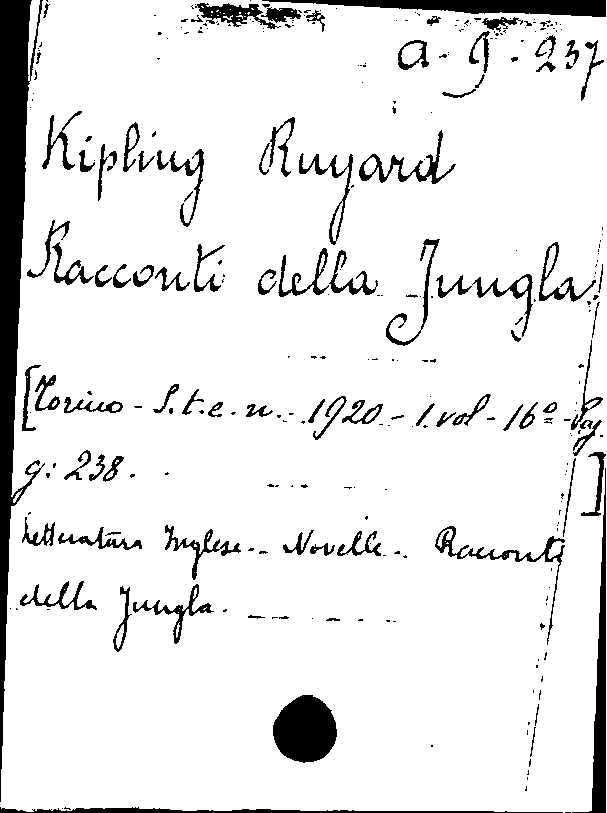 a-9-237
Kipling Ruyard
Racconti della Jungla.
[Torino - S.t.e.n. - 1920 - 1. vol - 16º - Pag
g: 238. ]
Letteratura Inglese. - Novelle. - Racconti
della Jungla.